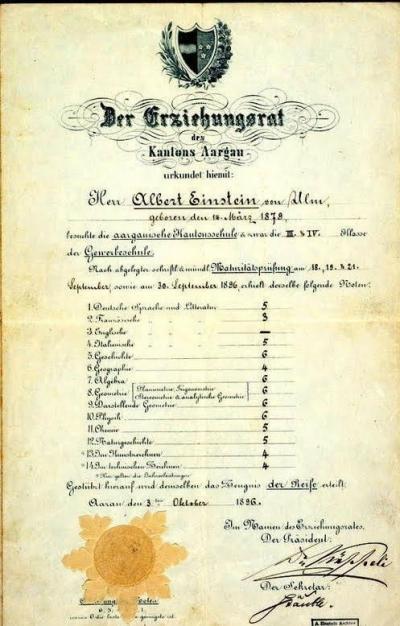 Der Erziehungsrat
des
Kantons Aargau
urkundet hiemit:
Herr Albert Einstein von Ulm,
geboren den 14. März 1879,
besuchte die aargauische Kantonsschule & zwar die III. & IV. Klasse
der Gewerbeschule.
Nach abgelegter schriftl. & mündl. Maturitätsprüfung am 18., 19. & 21.
September, sowie am 30. September 1896, erhielt derselbe folgende Noten:
1. Deutsche Sprache und Litteratur 5
2. Französische " " " 3
3. Englische " " " —
4. Italienische " " " 5
5. Geschichte 6
6. Geographie 4
7. Algebra 6
8. Geometrie Planimetrie, Trigonometrie Stereometrie & analytische Geometrie 6
9. Darstellende Geometrie 6
10. Physik 6
11. Chemie 5
12. Naturgeschichte 5
*13. Im Kunstzeichnen 4
*14. Im technischen Zeichnen 4
* Hier gelten die Jahresleistungen.
Gestützt hierauf wird demselben das Zeugnis der Reife erteilt.
Aarau den 3ten Oktober 1896.
Im Namen des Erziehungsrates,
Der Präsident:
Der Sekretär: